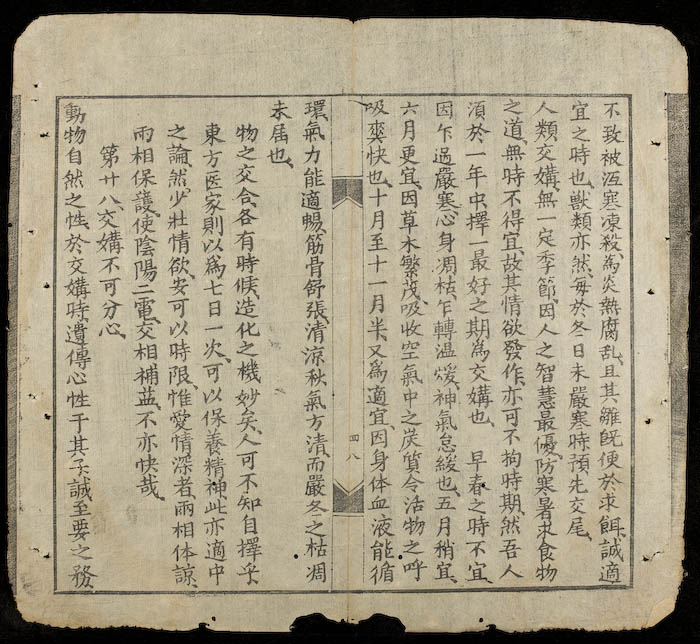 不致被沍寒凍殺、為炎熱腐乱、且其雛既便於求餌、誠適
宜之時也、獸類亦然、每於冬日未嚴寒時、預先交尾、
人類交媾、無一定季節、因人之智慧最優、防寒暑求食物
之道、無時不得宜、故其情欲發作、亦可不拘時期、然吾人
須於一年中、擇一最好之期為交媾也、 早春之時不宜、
因乍過嚴寒、心身凋枯、乍轉溫煖、神氣怠緩也、五月稍宜、
六月更宜、因草木繁茂、吸收空氣中之炭質、令活物之呼
吸爽快也、十月至十一月半、又爲適宜、因身体血液能循
四八
環、氣力能適暢、筋骨舒張、清涼秋氣方清、而嚴冬之枯凋
未届也、
物之交合、各有時候、造化之機妙矣、人可不知自擇乎、
東方医家、則以爲七日一次、可以保養精神、此亦適中
之論、然少壯情欲、安可以時限、惟愛情深者、兩相体諒、
兩相保護、使陰陽二電、交相補益、不亦快哉、
第廿八交媾不可分心、
動物自然之性、於交媾時、遺傳心性于其子、誠至要之務、